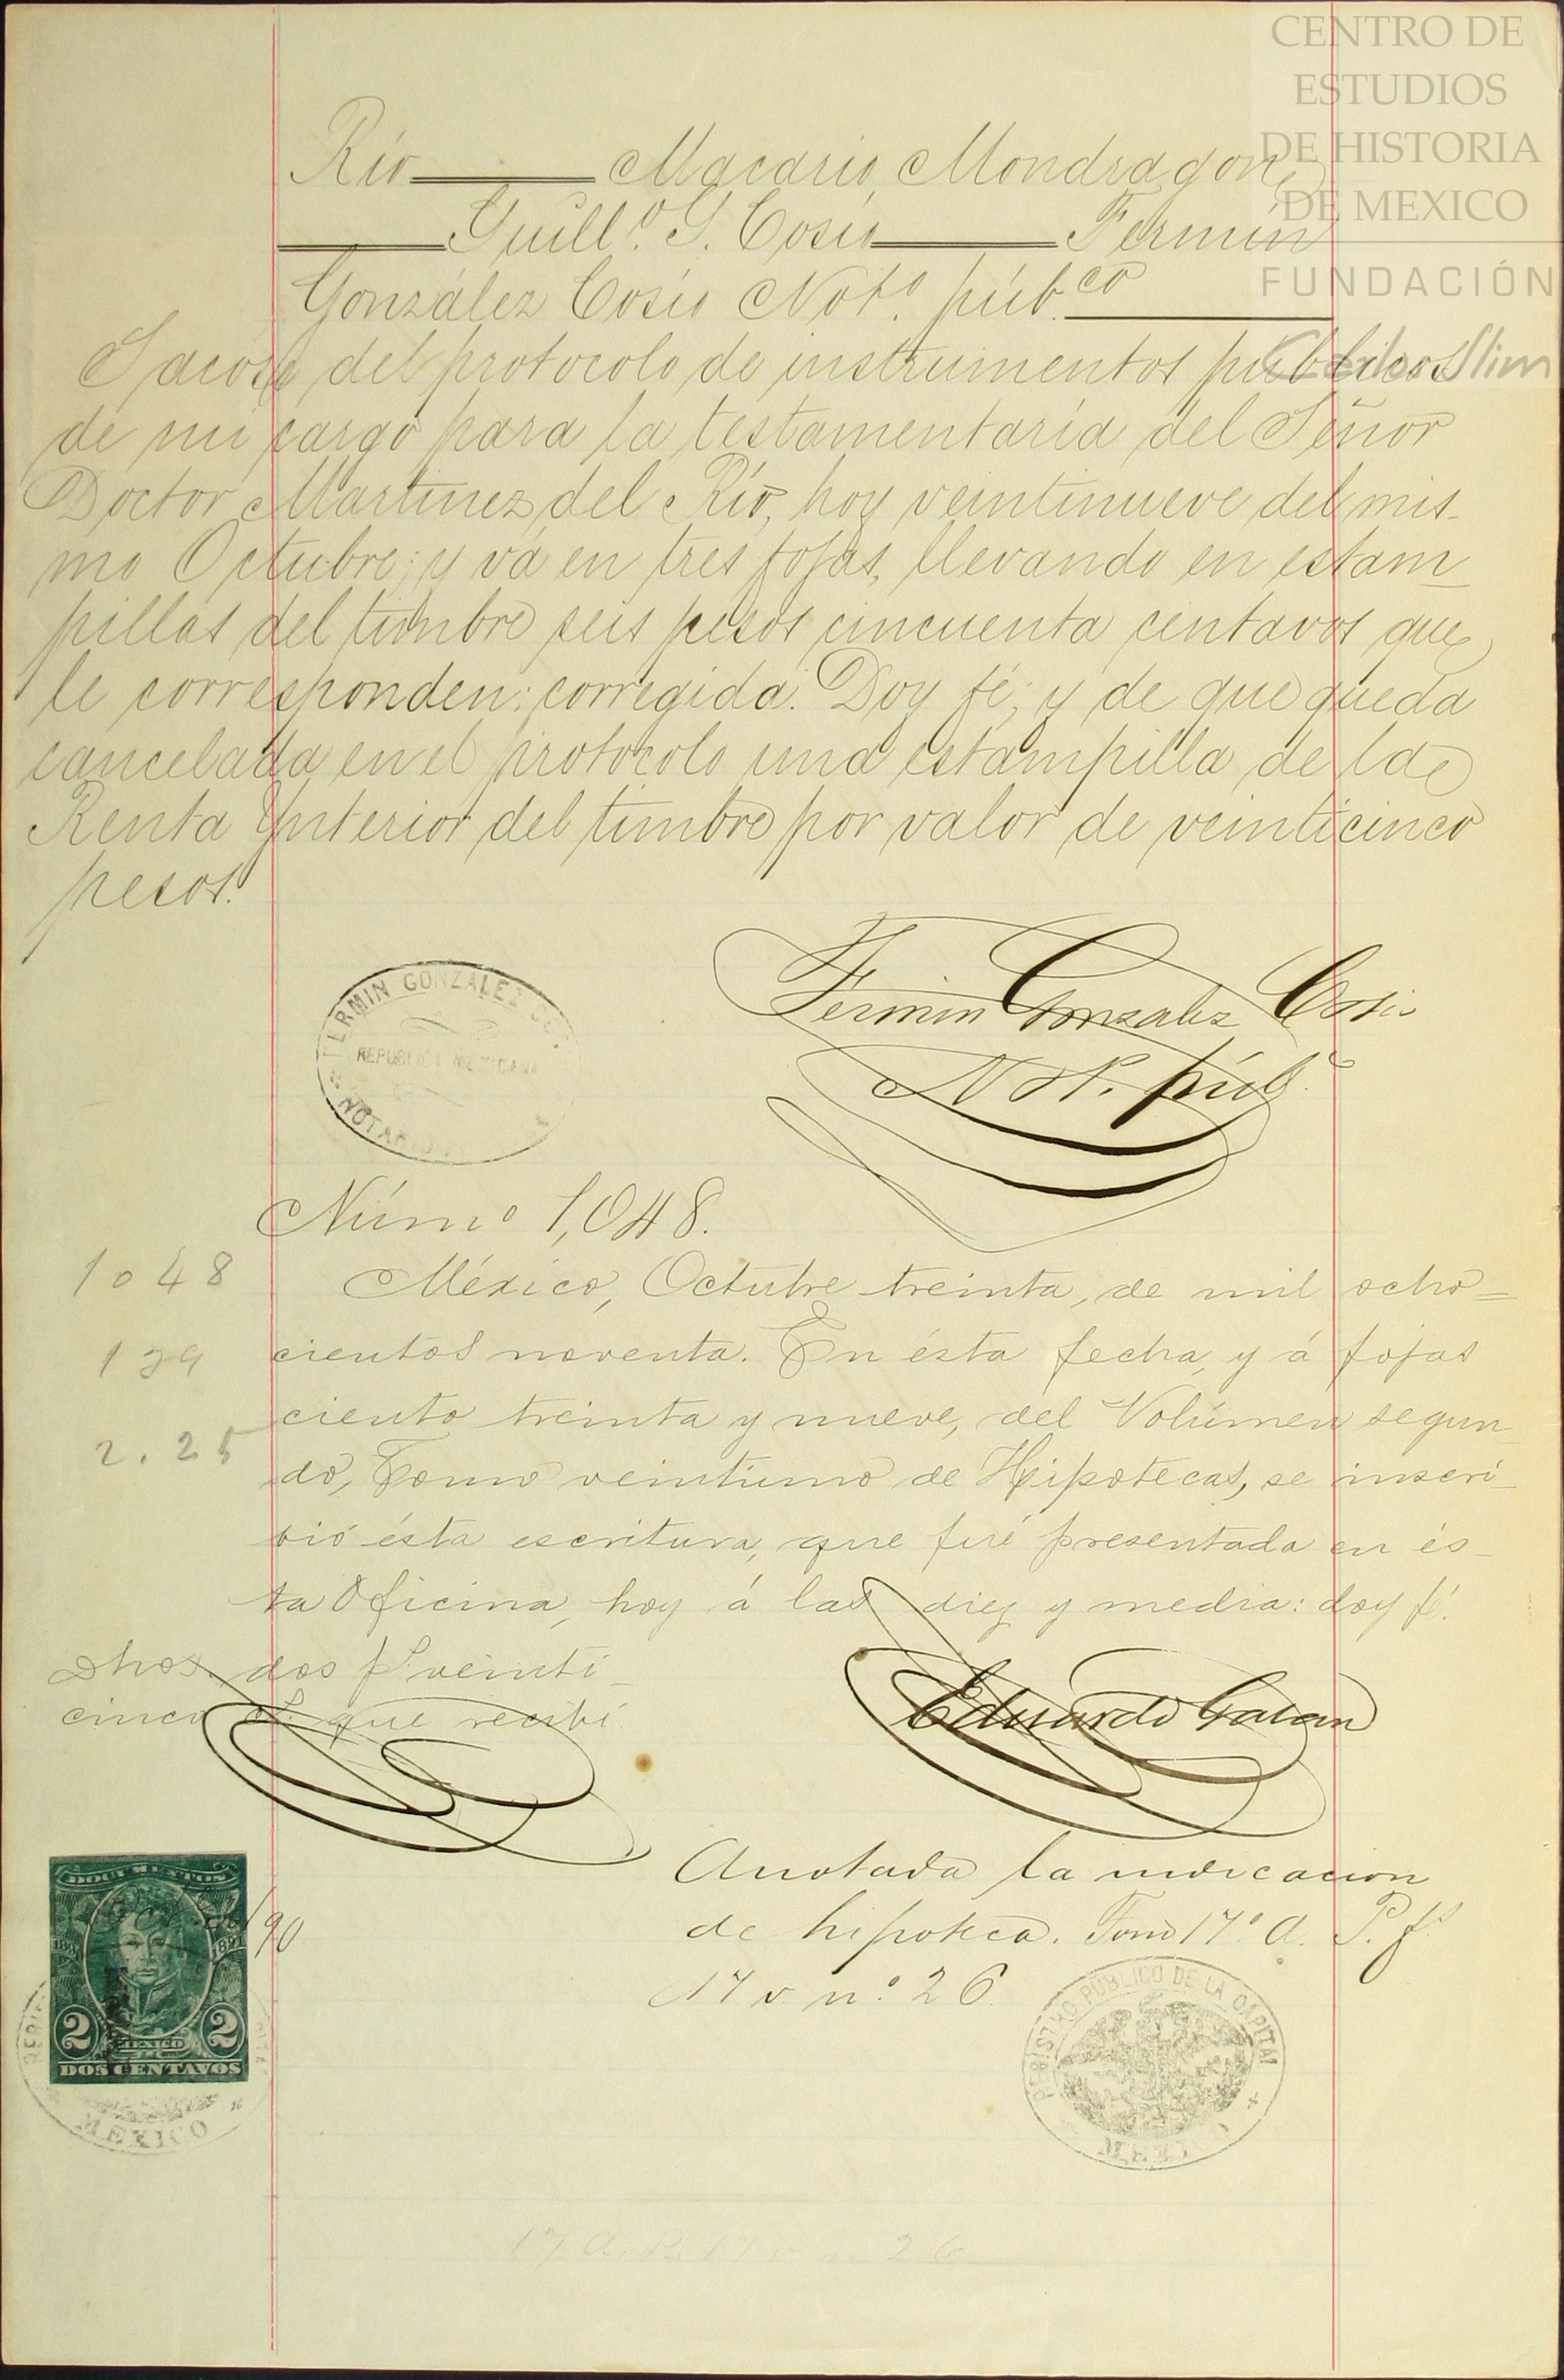 CENTRO DE
ESTUDIOS
DE HISTORIA
DE MEXICO
FUNDACIÓN
Carlos Slim
Río — Macario Mondragon,
— Guill.º G. Cosío — Fermín
González Cosío Not.º púb.co —
Sacóse del protocolo de instrumentos públicos
de mi cargo para la testamentaría del Señor
Doctor Martinez del Río, hoy veintinueve del mis-
mo Octubre; y vá en tres fojas, llevando en estam-
pillas del timbre seis pesos cincuenta centavos que
le corresponden: corregida. Doy fé; y de que queda
cancelada en el protocolo una estampilla de la
Renta Interior del timbre por valor de veinticinco
pesos.
Fermin Gonzalez Cosio
Not. púb.
FERMIN GONZALEZ CO
REPUBLICA MEXICANA
NOTARIO
Núm.º 1,048.
1048
México, Octubre treinta, de mil ocho=
139
cientos noventa. En ésta fecha, y á fojas
ciento treinta y nueve, del Volúmen segun-
2.25
do, Tomo veintiuno de Hipotecas, se inscri-
bió ésta escritura, que fué presentada en és-
ta Oficina, hoy á las diez y media: doy fé.
Dhos. dos p.s veinti-
cinco c.s que recibí
Eduardo Galan
Anotada la indicacion
de hipoteca. Tomo 17.º A. P. f.s
17 v n.º 26.
DOCUMENTOS
Oct. 30/90
1890 1891
2 2
MEXICO
DOS CENTAVOS
MEXICO
REGISTRO PUBLICO DE LA CAPITAL
MEXICO
17 A. P. 17 v n 26